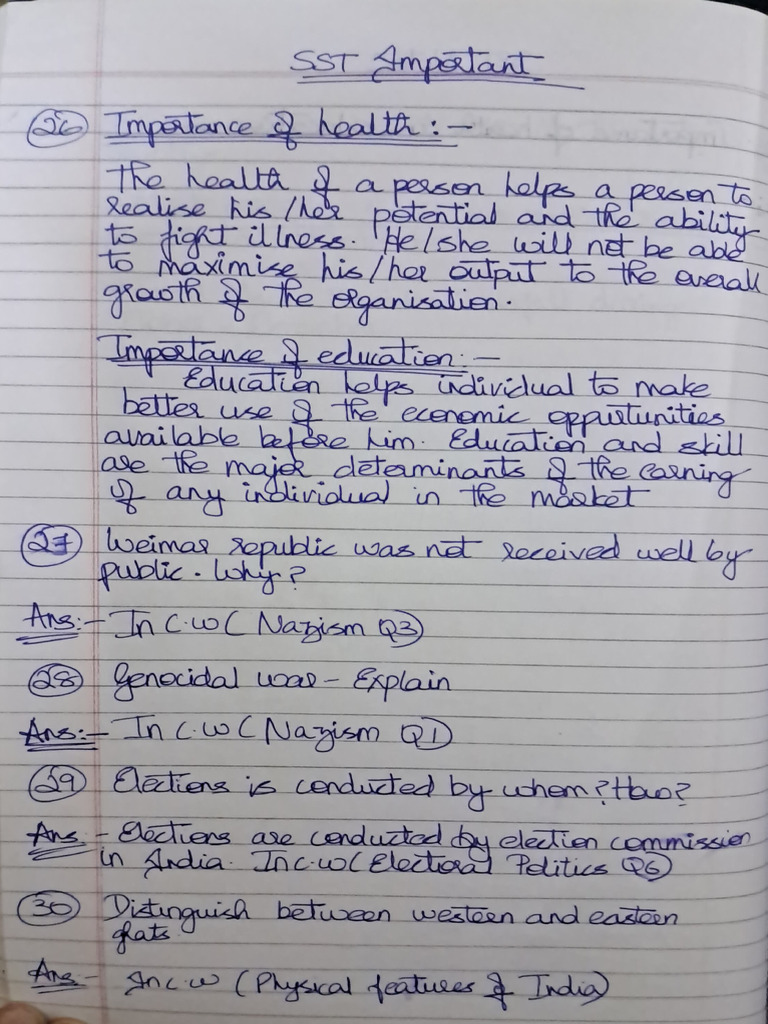 SST Important
26 Importance of health :-
The health of a person helps a person to
realise his/her potential and the ability
to fight illness. He/she will not be able
to maximise his/her output to the overall
growth of the organisation.
Importance of education :-
Education helps individual to make
better use of the economic oppurtunities
available before him. Education and skill
are the major determinants of the earning
of any individual in the market
27 Weimar republic was not received well by
public. Why?
Ans:- In C.W ( Nazism Q3)
28 Genocidal war - Explain
Ans:- In C.W ( Nazism Q1)
29 Elections is conducted by whom? How?
Ans - Elections are conducted by election commission
in India. In C.W ( Electoral Politics Q6)
30 Distinguish between western and eastern
ghats.
Ans - In C.W (Physical features of India)